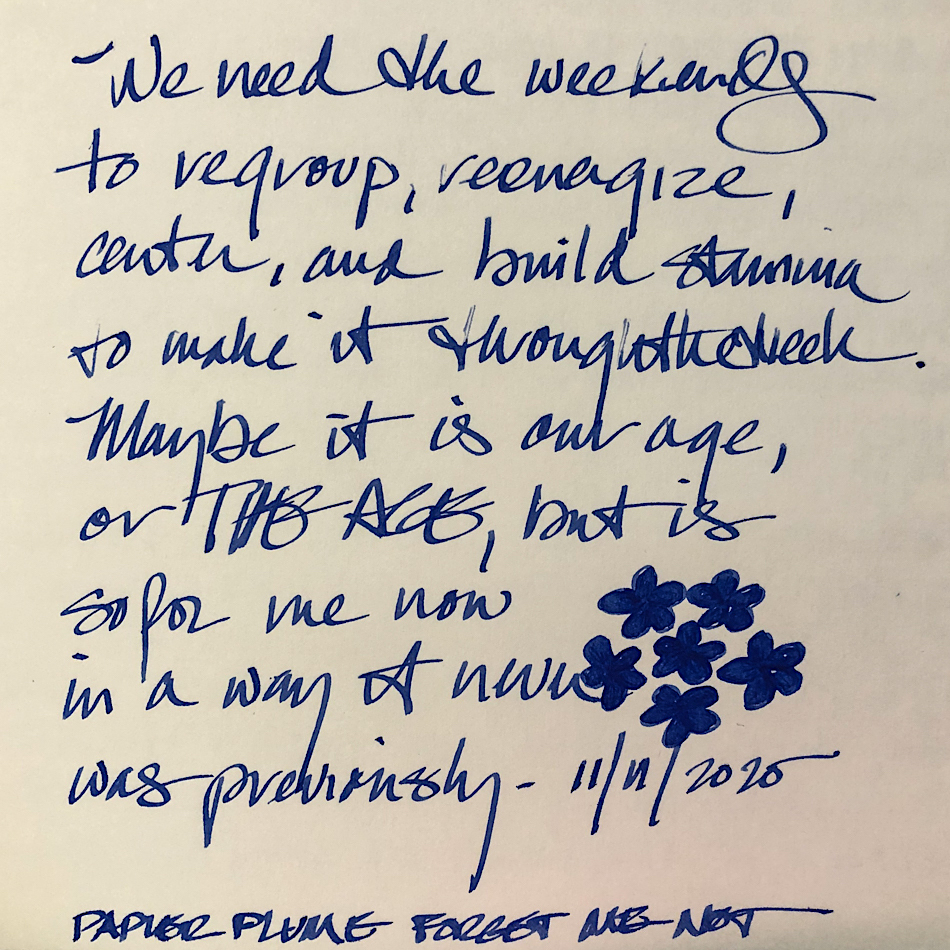 We need the weekends
to regroup, reenergize,
center, and build stamina
to make it through the week.
Maybe it is our age,
or THE AGE, but is
so for me now
in a way it never
was previously - 11/11/2025
PAPIER PLUME FORGET ME NOT